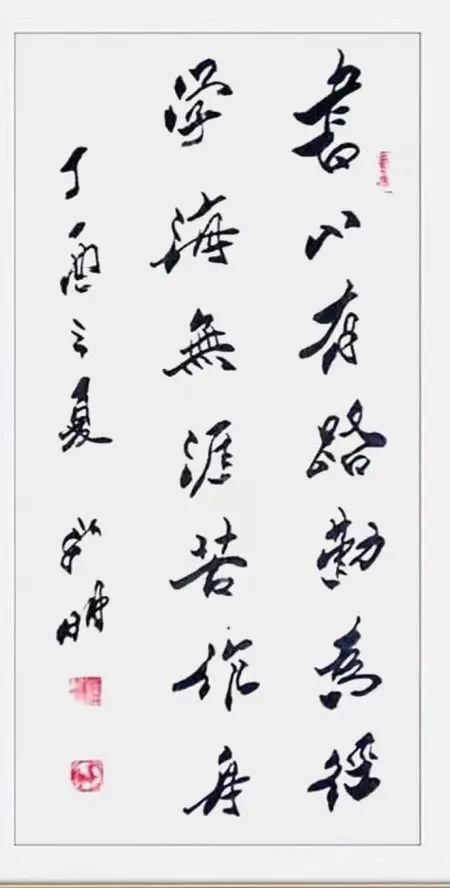 書山有路勤為徑
学海無涯苦作舟
丁酉之夏
明